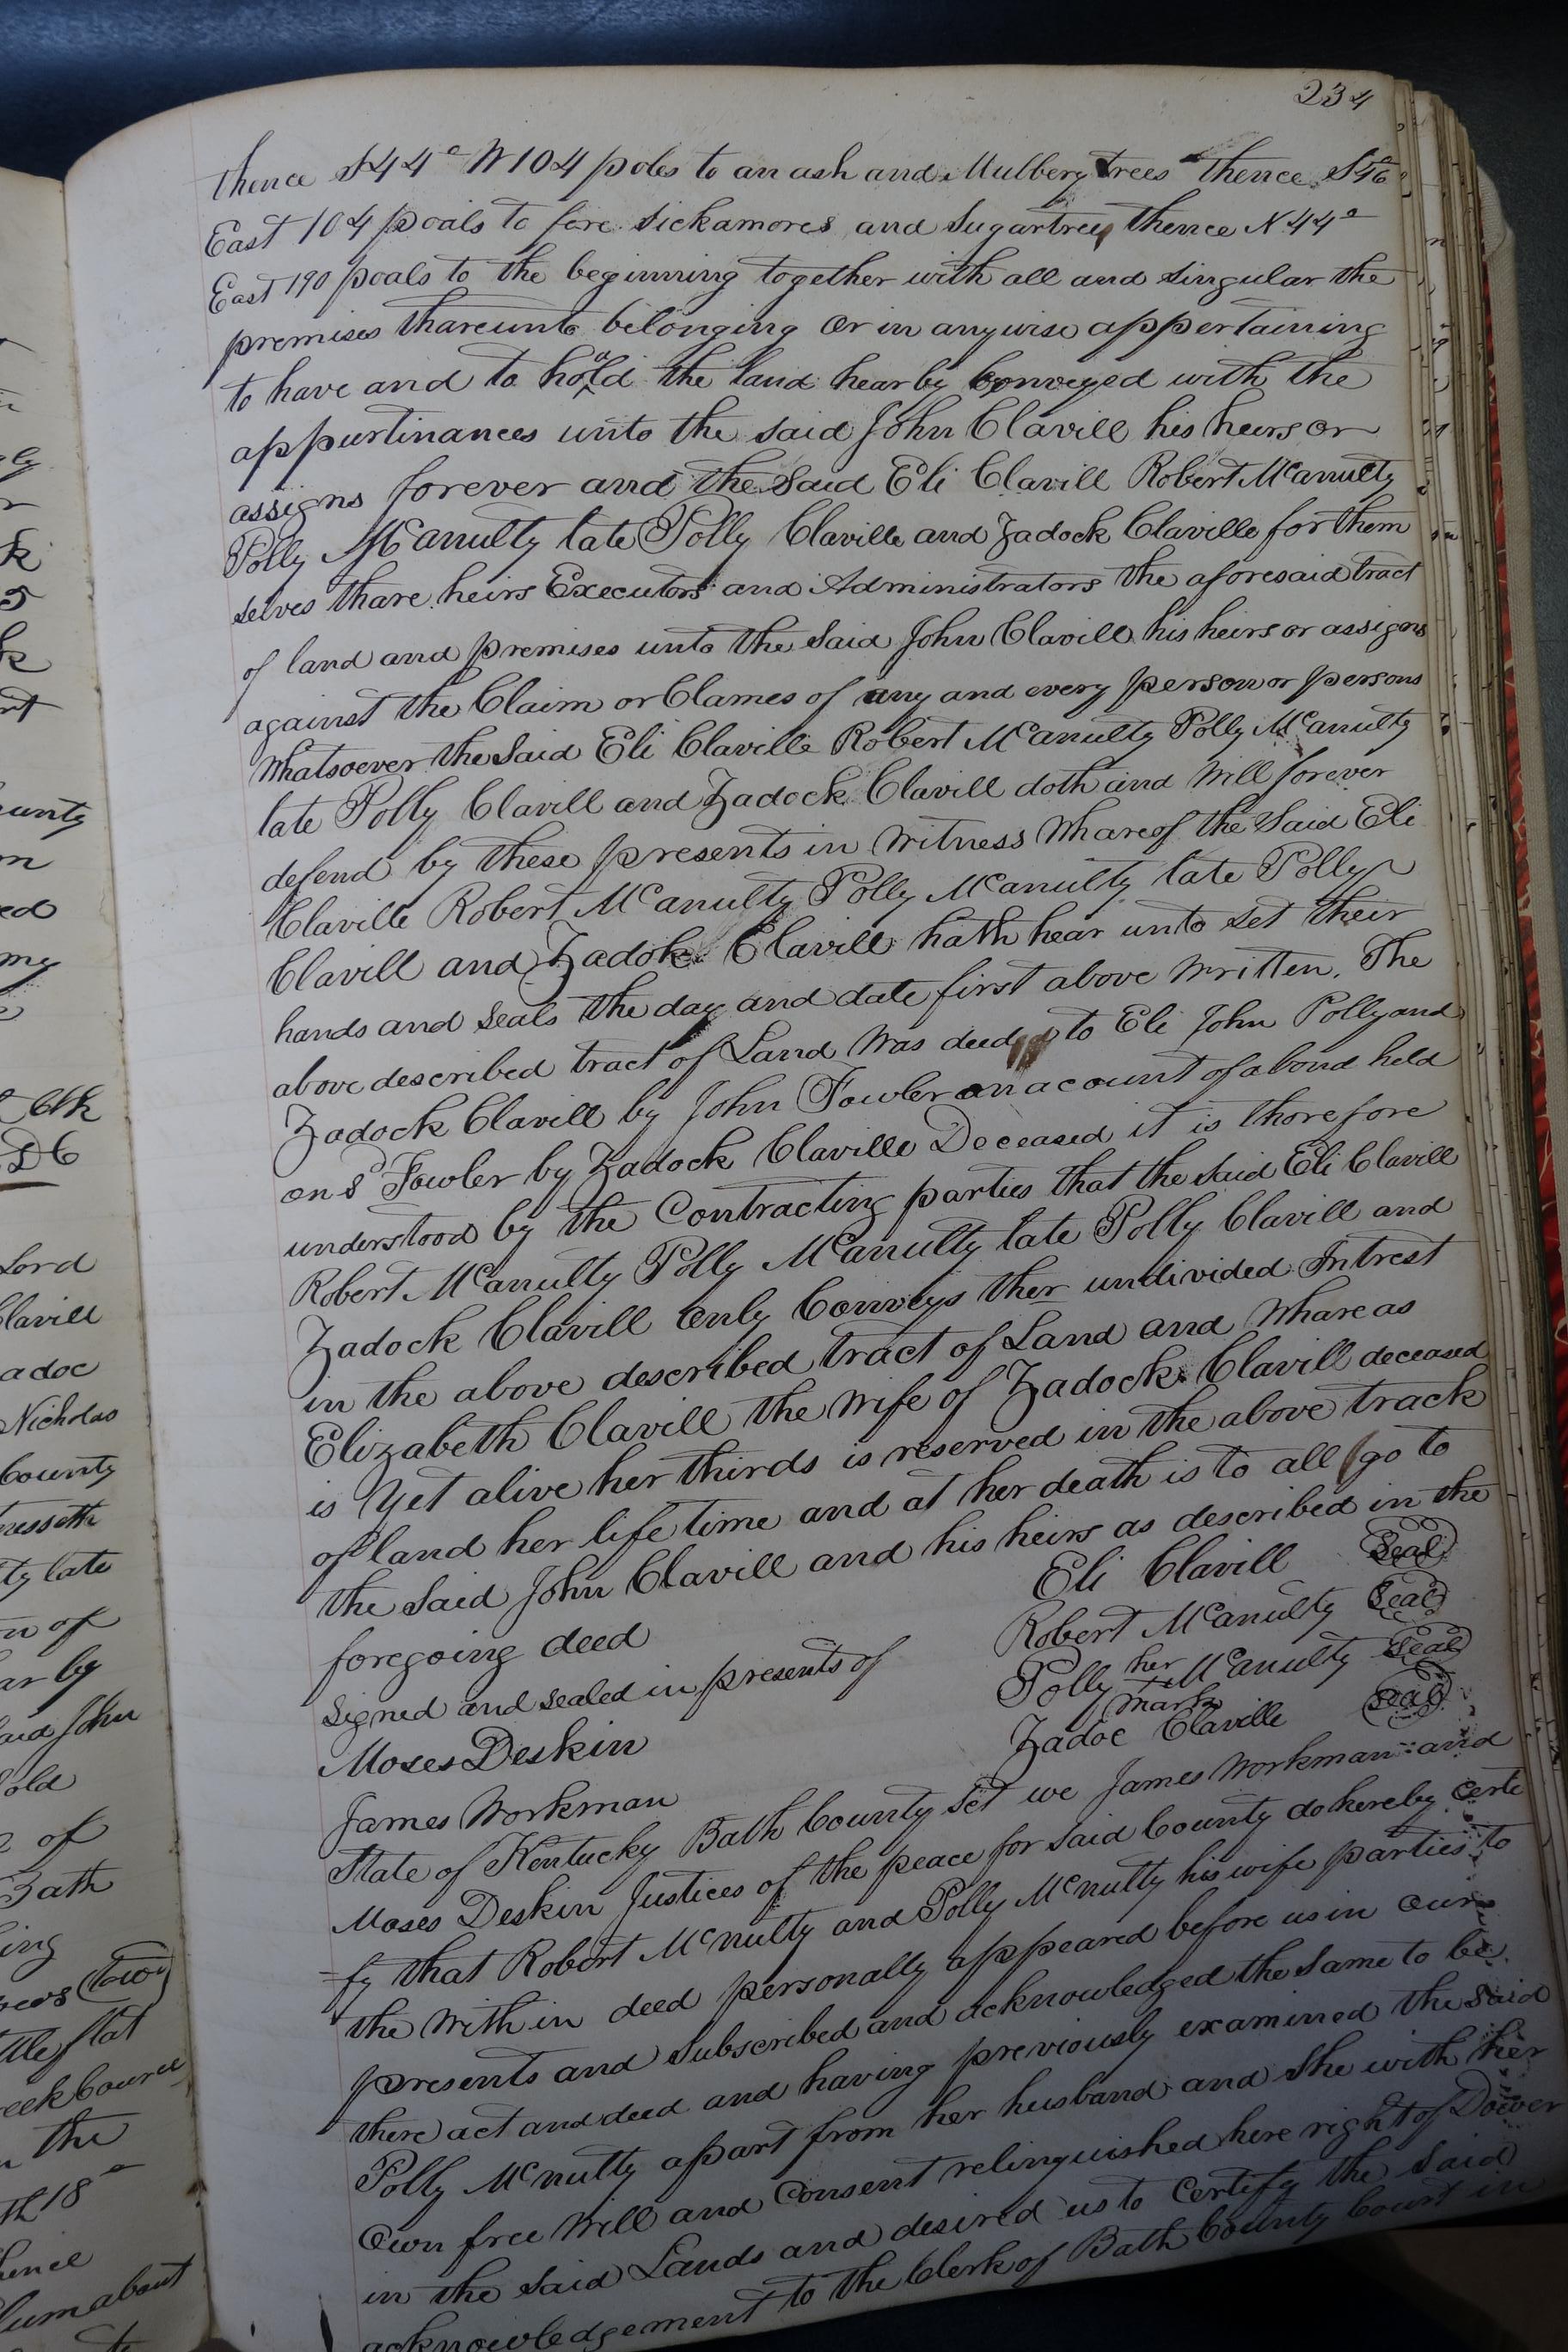 234
thence S44° W104 poles to an ash and Mulbery trees thence S46
East 104 poals to fore Sickamores and Sugartree, thence N 44°
East 190 poals to the beginning together with all and singular the
premises thareunto belonging or in anywise appertaining
to have and to hold the land hearby Conveyed with the
appurtinances unto the said John Clavill his heirs or
assigns forever and the Said Eli Clavill Robert McAnulty
Polly McAnulty late Polly Claville and Zadock Claville for them
selves thare heirs Executors and Administrators the aforesaid tract
of land and premises unto the Said John Clavill his heirs or assigns
against the Claim or Clames of any and every person or persons
Whatsoever the Said Eli Claville Robert McAnulty Polly McAnulty
late Polly Clavill and Zadock Clavill doth and Will forever
defend by these presents in Witness Whareof the Said Eli
Claville Robert McAnulty Polly McAnulty late Polly
Clavill and Zadok Clavill hath hear unto set their
hands and seals the day and date first above Written. The
above described tract of Land Was deed to Eli John Polly and
Zadock Clavill by John Fowler on acount of a bond held
on Sd Fowler by Zadock Claville Deceased it is thorefore
understood by the Contracting parties that the said Eli Clavill
Robert McAnulty Polly McAnulty late Polly Clavill and
Zadock Clavill only Conveys ther undivided Intrest
in the above described tract of Land and Whareas
Elizabeth Clavill the Wife of Zadock Clavill deceased
is Yet alive her thirds is reserved in the above track
of land her life time and at her death is to all go to
the Said John Clavill and his heirs as described in the
foregoing deed
Eli Clavill Seal
Signed and sealed in presents of
Robert McAnulty Seal
Moses Deskin
Polly her mark McAnulty Seal
James Workman
Zadoc Claville Seal
State of Kentucky Bath County Sct we James Workman and
Moses Deskin Justices of the peace for said County do hereby certi
=fy that Robert McNulty and Polly McNulty his wife parties to
the With in deed personally appeared before us in our
presents and Subscribed and acknowledged the same to be
there act and deed and having previously examined the said
Polly McNulty apart from her husband and She with her
Own free Will and Consent relinquished here right of Dower
in the said Lands and desired us to certify the said
acknowledgement to the Clerk of Bath County Court in
unty
Clk
Lord
Clavill
Nicholas
County
ty late
of
ar by
said John
of
Bath
the